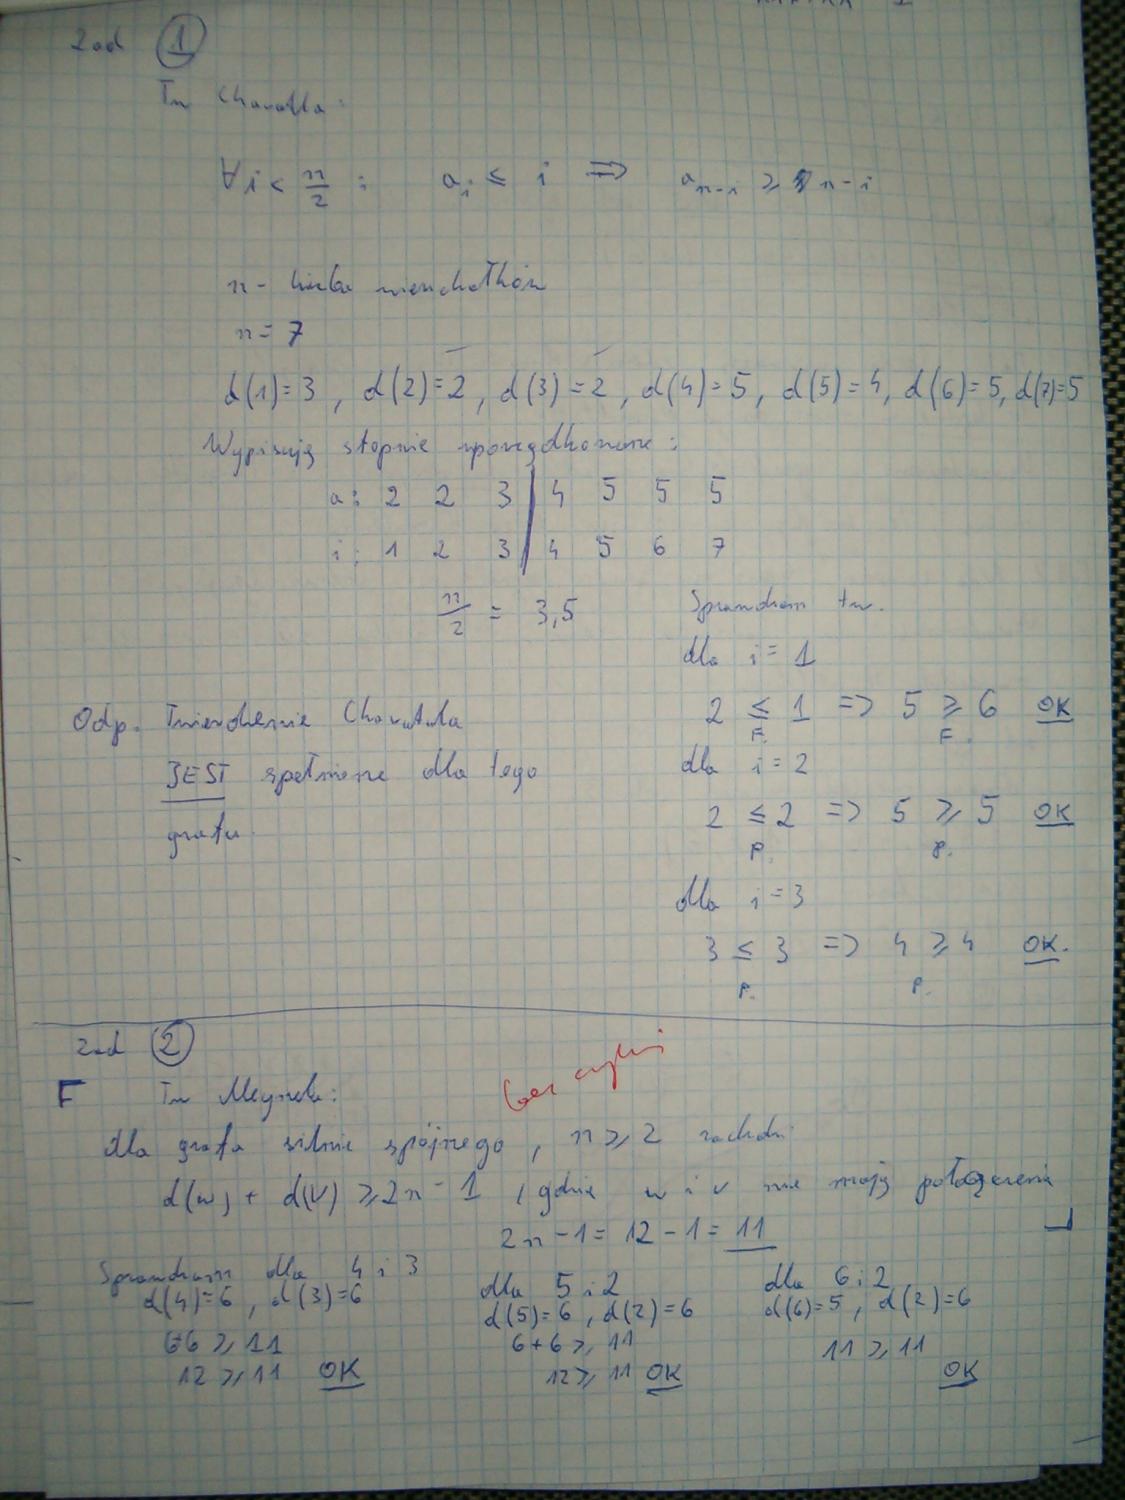 Zad 1
Tw Chvatala:
∀ i < n/2 : a_i ≤ i ⇒ a_{n-i} ≥ n-i
n - liczba wierzchołków
n = 7
d(1)=3, d(2)=2, d(3)=2, d(4)=5, d(5)=4, d(6)=5, d(7)=5
Wypisuję stopnie uporządkowane:
a: 2 2 3 | 4 5 5 5
i: 1 2 3 | 4 5 6 7
n/2 = 3,5
Sprawdzam tw.
dla i = 1
2 ≤ 1 => 5 ≥ 6 OK
F. F.
dla i = 2
2 ≤ 2 => 5 ≥ 5 OK
P. P.
dla i = 3
3 ≤ 3 => 4 ≥ 4 OK.
P. P.
Odp. Twierdzenie Chvatala
JEST spełnione dla tego
grafu
Zad 2
bez cykli
F Tw Meyniela:
dla grafu silnie spójnego, n ≥ 2 zachodzi
d(u) + d(v) ≥ 2n - 1, gdzie u i v nie mają połączenia
2n - 1 = 12 - 1 = 11
Sprawdzam dla 4 i 3
d(4)=6, d(3)=6
6+6 ≥ 11
12 ≥ 11 OK
dla 5 i 2
d(5)=6, d(2)=6
6+6 ≥ 11
12 ≥ 11 OK
dla 6 i 2
d(6)=5, d(2)=6
11 ≥ 11
OK